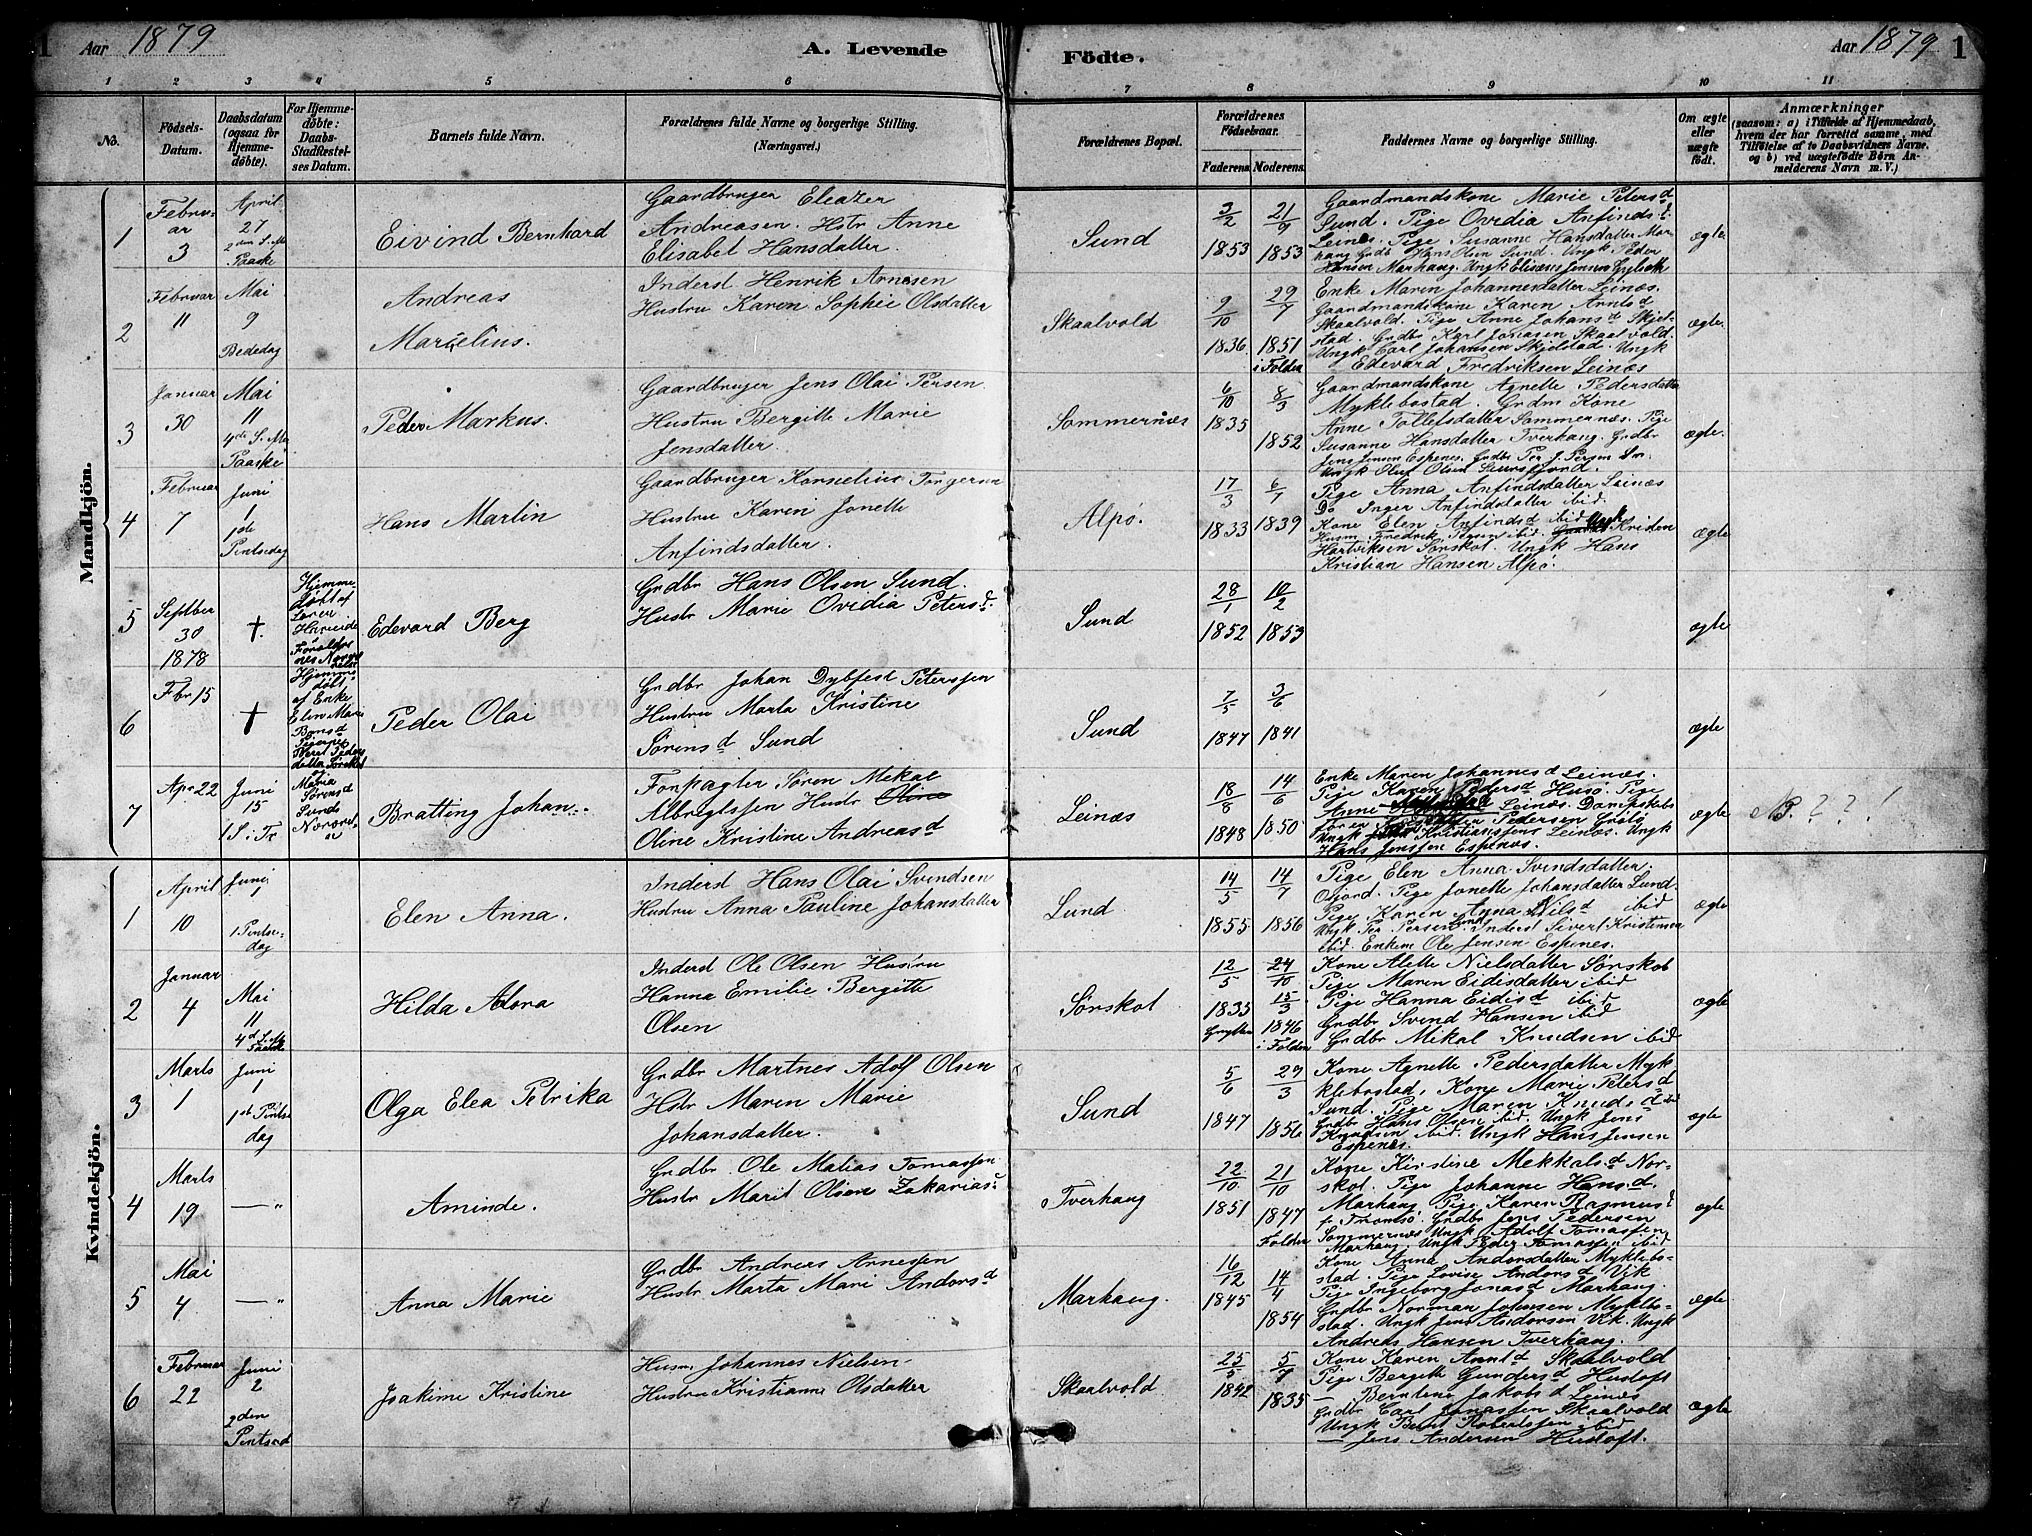 1 Aar 1879 A. Levende Födte. Aar 1879 1
1 2 3 4 5 6 7 8 9 10 11
No. Födsels-Datum. Daabsdatum (ogsaa for Hjemme-døbte). For Hjemme-døbte: Daabs-Stadfæstel-ses Datum. Barnets fulde Navn. Forældrenes fulde Navne og borgerlige Stilling. (Næringsvei.) Forældrenes Bopæl. Forældrenes Födselsaar. Faderens Moderens Faddernes Navne og borgerlige Stilling. Om ægte eller uægte födt. Anmærkninger (saasom: a) i Tilfælde af Hjemmedaab, hvem der har forrettet samme, med Tilföielse af to Daabsvidners Navne, og b) ved uægtefödte Börn An-melderens Navn m. V.)
Mandkjön.
1
Febru-
ar
3
April
27
2den S. eft
Paaske
Eivind Bernhard
Gaardbruger Eleazer
Andreasen. Hstr Anne
Elisabet Hansdatter.
Sund
3/2 1853
21/9 1853
Gaardmandskone Marie Petersd
Sund. Pige Ovedia Anfindsd.
Leines. Pige Susanne Hansdatter Mar-
hang Grdb Hans Olsen Sund. Ungk Peder
Hansen Marhaug. Ungk Elisæus Jensen Gylseth
ægte
2
Februar
11
Mai
9
Bededag
Andreas
Marcelius.
Inderst Henrik Arnesen
Hustru Karen Sophie Olsdatter
Skaalvold
9/10 1836
29/7 1851
i Folden
Enke Maren Johannesdatter Leinæs.
Gaardmandskone Karen Arntsd
Skaalvold. Pige Anne Johansd Skjel-
stad. Grdbr Karl Jonasen Skaalvold.
Ungk Carl Johansen Skjelstad. Ungk
Edevard Fredriksen Leinæs
ægte
3
Januar
30
Mai
11
4de S. eft
Paaske
Peder Markus.
Gaardbruger Jens Olai Persen
Hustru Bergitte Marie
Jensdatter.
Sommernæs
6/10 1835
8/3 1852
Gaardmandskone Agnette Pedersdatter
Myklebostad. Grdm Kone
Anne Tollefsdatter Sommernæs. Pige
Susanne Hansdatter Tverhang. Grdbr
Jens Jensen Espenes. Grdbr Per J. Persen Sm.
Ungk Oluf Olsen
ægte.
4
Februar
7
Juni
1
1ste
Pintsedag
Hans Martin
Gaardbruger Kornelius Torgersen
Hustru Karen Jonette
Anfindsdatter.
Alpø.
17/3 1833
6/1 1839
Pige Anna Anfindsdatter Leinæs
Do Inger Anfindsdatter ibid
Kone Elen Anfindsd ibid
Husm Fredrik Persen ibid. Ungk Kristen
Hartviksen Sørskot. Ungk Hans
Kristian Hansen Alpø.
ægte
5
Septber
30
1878
†.
Hjemme-
døbt af
Edevard Berg
Grdbr Hans Olsen Sund.
Hustr Marie Ovedia Petersd.
Sund
28/1 1852
10/2 1853
ægte
6
Fbr 15
†
Hjemme
døbt
af Enke
Elen Marie
Peder Olai
Grdbr Johan Dybfest Peterssen
Hustru Marta Kristine
Sørensd Sund
Sund
7/5 1847
3/6 1841
ægte
7
Apr 22
Juni
15
1 S. i Tr
Maria
Sørensd
Sund
Bratting Johan.
Forpagter Søren Mekal
Albregtssen Hustr Oline
Oline Kristine Andreasd
Leinæs
18/8 1848
14/6 1850
Enke Maren Johannesd Leinæs.
Pige Karen Pedersd Husø. Pige
Anne Leinæs. Dampskibs
Pedersen Grøtø
Ungk Kristianssens Leinæs. Ungk
Hans Jenssen Espenæs.
ægte
NB. ? ? !
Kvindekjön.
1
April
10
Juni
1
1 Pintse-
dag
Elen Anna.
Inderst Hans Olai Svendsen
Hustru Anna Pauline Johansdatter
Lund
14/5 1855
14/7 1856
Pige Elen Anna Svendsdatter
Osjord. Pige Jonette Johansdatter Lund.
Pige Karen Anna Nilsd ibid
Ungk Per Persen Lund Inderst Sivert Kristensen
ibid. Enkem Ole Jensen Espenes.
ægte
2
Januar
4
Mai
11
4d S. eft
Paaske
Hilda Adora
Inderst Ole Olsen Hustru
Hanna Emilie Bergitte
Olsen
Sørskot
12/5 1835
24/10 15/3 1846
i Folden
Kone Alette Nielsdatter Sørskot
Pige Maren Eidisdatter ibid
Pige Hanna Eidisd ibid
Grdbr Svend Hansen ibid
Grdbr Mikal Knudsen ibid
ægte
3
Marts
1
Juni
1
1st Pintse
dag
Olga Elea Petrika
Grdbr Martnes Adolf Olsen
Hstr Maren Marie
Johansdatter.
Sund
5/6 1847
27/3 1856
Kone Agnette Pedersdatter Myk
klebostad, Kone Marie Petersd
Sund. Pige Maren Knudsd ibid
Grdbr Hans Olsen ibid. Ungk Jens
Knudsen ibid. Ungk Hans Jensen
Espenes.
ægte
4
Marts
19
— "
Aminde.
Grdbr Ole Matias Tomassen
Hustr Marit Olsen Zakariasd
Tverhang
22/10 1851
21/10 1847
Folden
Kone Kirstine Mekkalsd Nor-
skot. Pige Johanne Hansd.
Marhang Pige Karen Rasmusd
p Tromsø. Grdbr Jens Pedersen
Sommernæs Ungk Adolf Tomassen
Marhang Ungk Peder Tomassen ibid
ægte
5
Mai
4
— "
Anna Marie
Grdbr Andreas Arnessen
Hustr Marta Marie Andorsd
Marhang.
16/12 1845
14/4 1854
Kone Anna Andorsdatter Myklebo-
stad. Pige Lovise Andorsd Vik
Pige Ingeborg Jonasd Marhaug
Grdbr Norman Johnsen Myklebo-
stad. Ungk Jens Andorsen Vik. Ungk
Andreas Hansen Tverhang.
ægte
6
Februar
22
Juni
2
2den
Pintsed
Joakime Kristine
Husm Johannes Nielsen
Hustru Kristianne Olsdatter
Skaalvold
25/5 1842
5/7 1835
Kone Karen Arntd Skaalvold
Pige Bergitte Gundersd Hustoft
— Berntine Jakobsd Leinæs
Grdbr Carl Jonassen Skaalvold
Ungk Bernt Robertssen ibid
— Jens Andersen Hustoft.
ægte